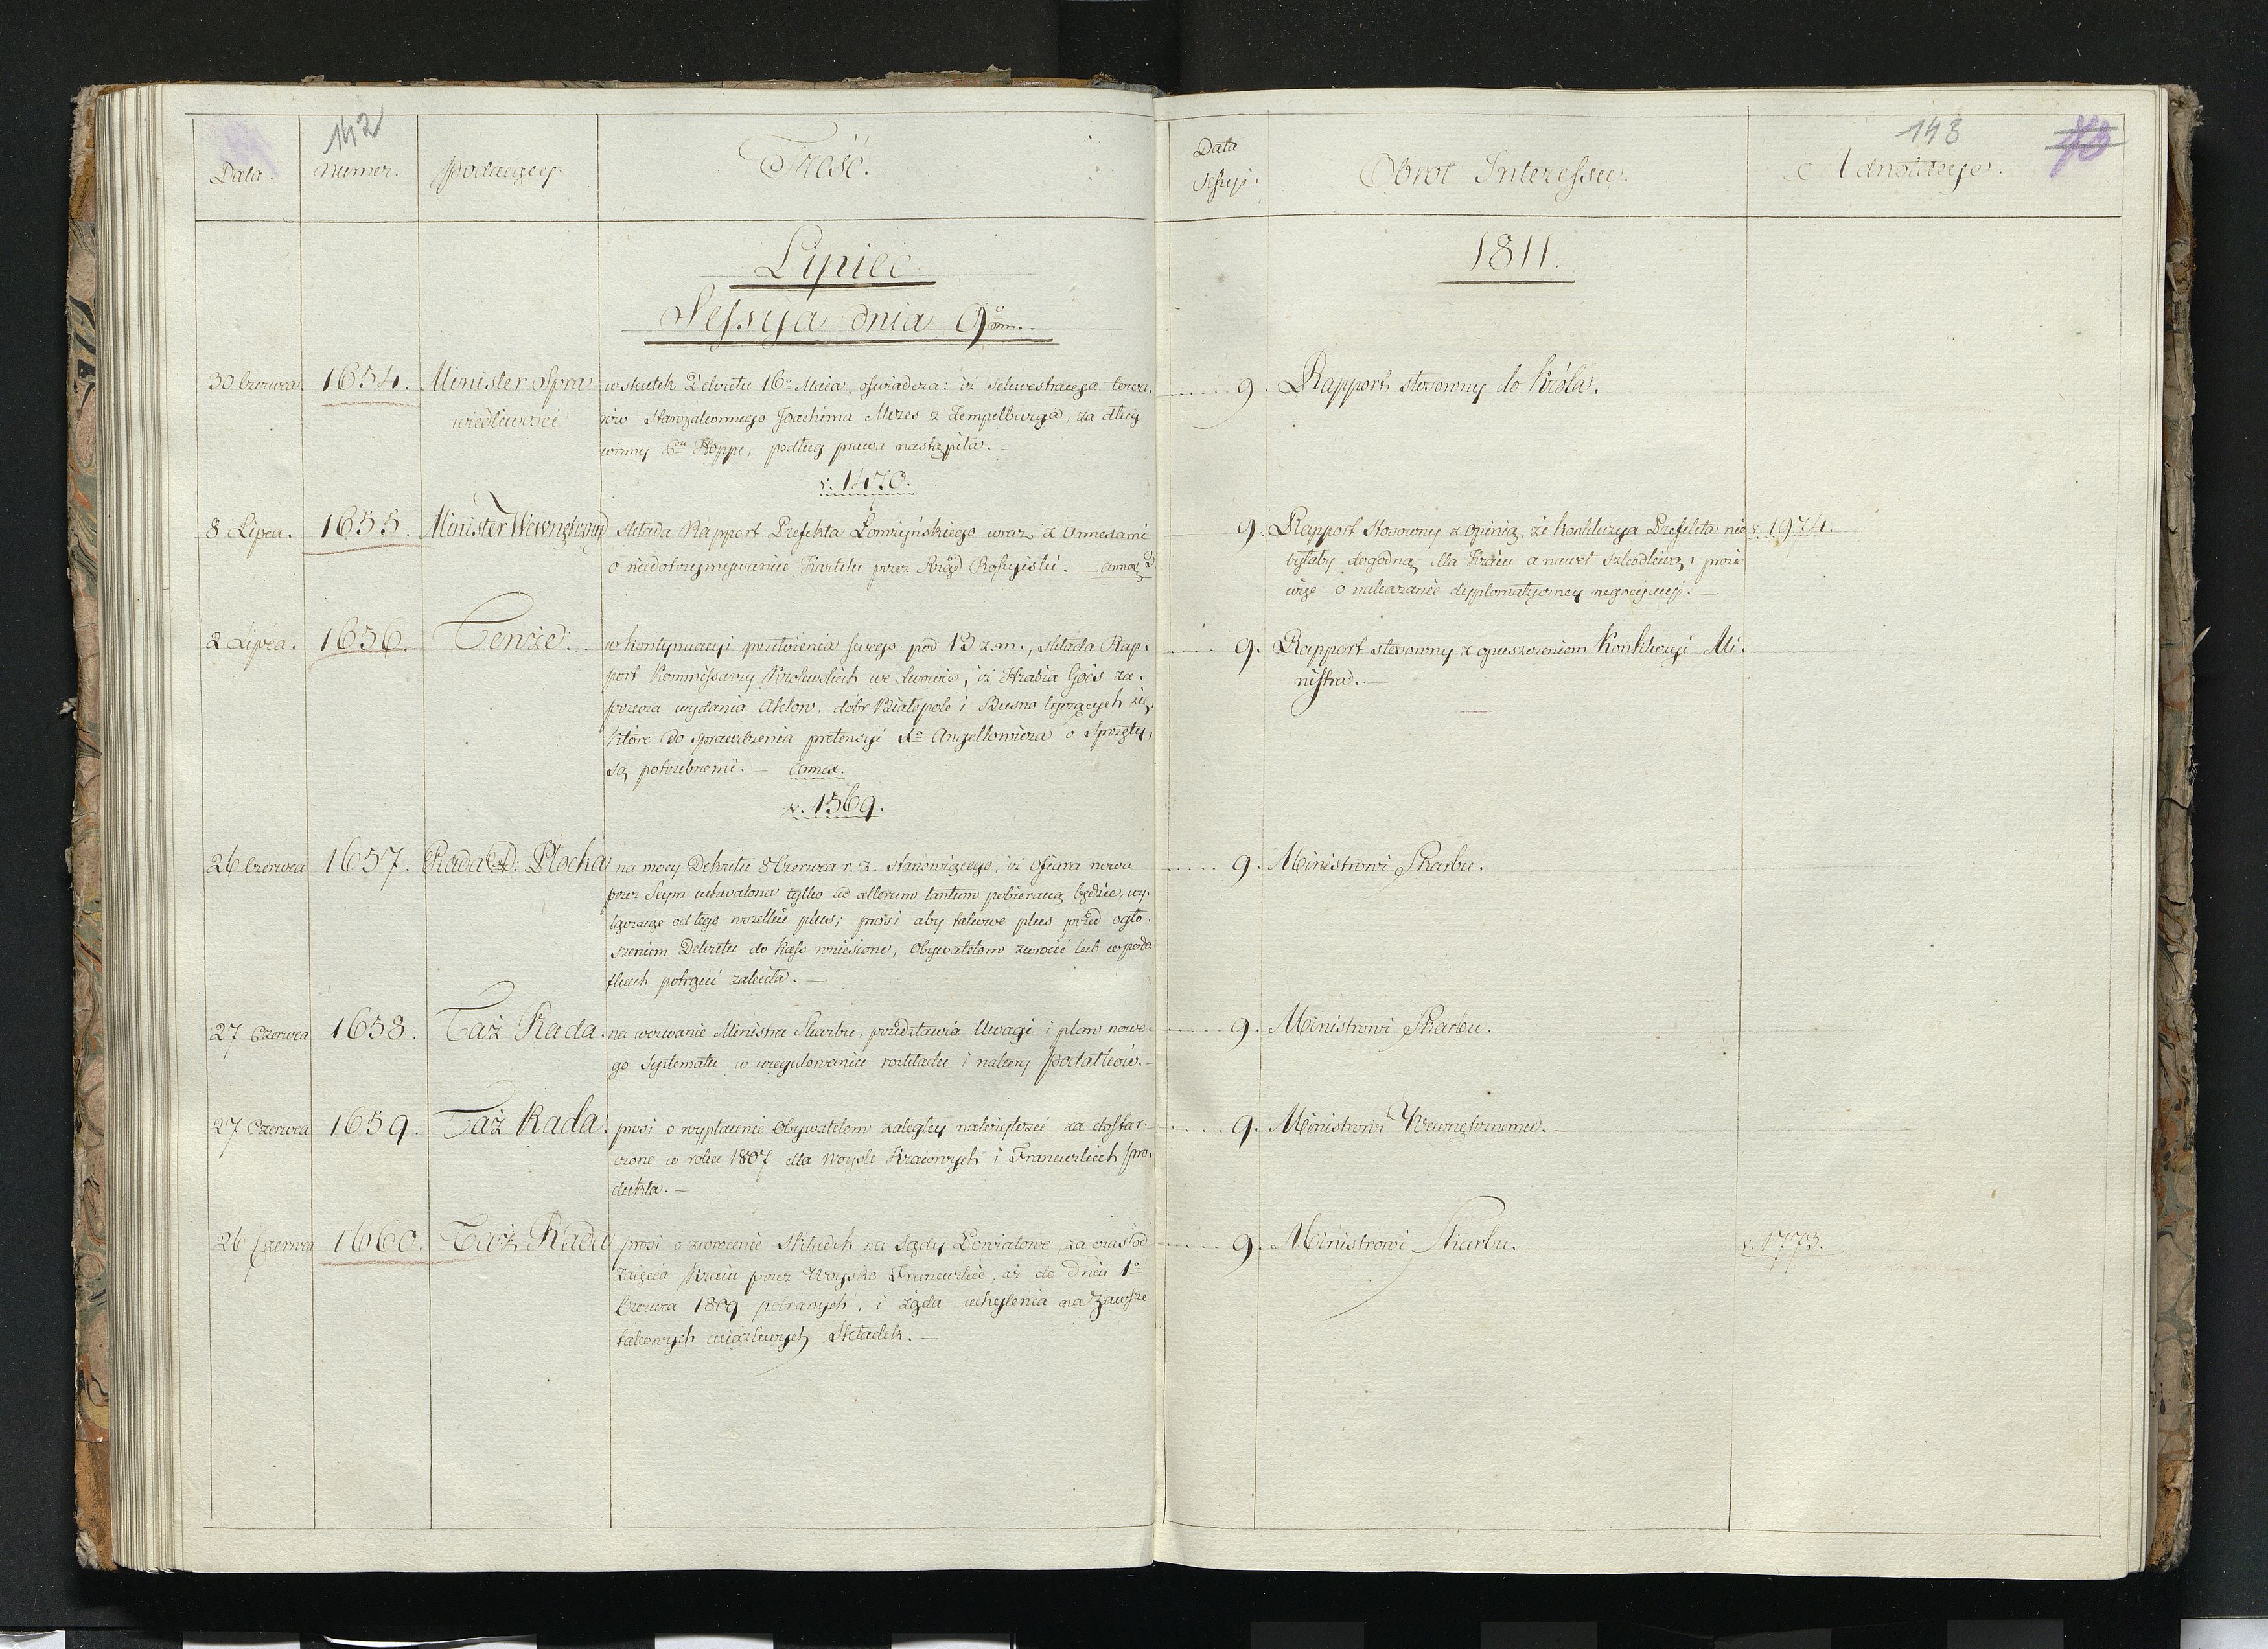 142
Data. Numer. Podaiący. Treść.
Lipiec
Sessyia dnia 9º
30 Czerwca. 1654. Minister Spra-
wiedliwości
w skutek Dekretu 16º Maia, oświadcza: iż sekwestracya towa-
rów Starozakonnego Joachima Mozes z Zempelburga, za dług
winny Hoppe, podług prawa nastąpiła. —
v. 1470.
8 Lipca. 1655. Minister Wewnętrzny składa Rapport Prefekta Łomżyńskiego wraz z annexami
o niedotrzymywaniu Kartelu przez Rząd Rossyiski. — annex 3
2 Lipca. 1656. Tenże. w kontynuacyi przełożenia swego pod 13 z.m., składa Rap-
port Kommissarzy Krolewskich we Lwowie, iż Hrabia Göes za-
przecza wydania Aktow. dóbr Białopole i Busno tyczących się,
które do sprawdzenia pretensyi Xº Angellowicza o Sprzęty,
są potrzebnemi. — annex.
v. 1569.
26 Czerwca 1657. Rada D: Płocka na mocy Dekretu 8 Czerwca r. z. stanowiącego, iż ofiara nowa
przez Seym uchwalona tylko ad alterum tantum pobieraną będzie, wy-
łączaiąc od tego wszelkie plus; prosi aby takowe plus przed ogło-
szeniem Dekretu do Kass wniesione, Obywatelom zwrócić lub w poda
tkach potrącić zaleciła. —
27 Czerwca 1658. Taż Rada. na wezwanie Ministra Skarbu, przedstawia Uwagi i plan nowe-
go Systematu w uregulowaniu rozkładu i poboru Podatków. —
27 Czerwca 1659. Taż Rada. prosi o wypłacenie Obywatelom zaległey należytości za dostar-
czone w roku 1807 dla Woysk Kraiowych i Francuzkich pro-
dukta. —
26 Czerwca 1660. Taż Rada prosi o zwrócenie Składek na Sądy Powiatowe, za czas od
zaięcia Kraiu przez Woysko Francuzkie, aż do dnia 1º
Czerwca 1809 pobranych, i żąda uchylenia na zawsze
takowych uciążliwych Składek. —
143
Data
Sessyi. Obrot Interessu. Adnotacye.
1811.
9. Rapport stosowny do Króla.
9. Rapport stosowny z opinią, że konkluzya Prefekta nie v. 1974.
byłaby dogodną dla Kraiu a nawet szkodliwą, prosi
więc o nakazanie dyplomatyczney negocyacyi. —
9. Rapport stosowny z opuszczeniem Konkluzyi Mi-
nistra. —
9. Ministrowi Skarbu.
9. Ministrowi Skarbu.
9. Ministrowi Wewnętrznemu. —
9. Ministrowi Skarbu. — v. 1773.